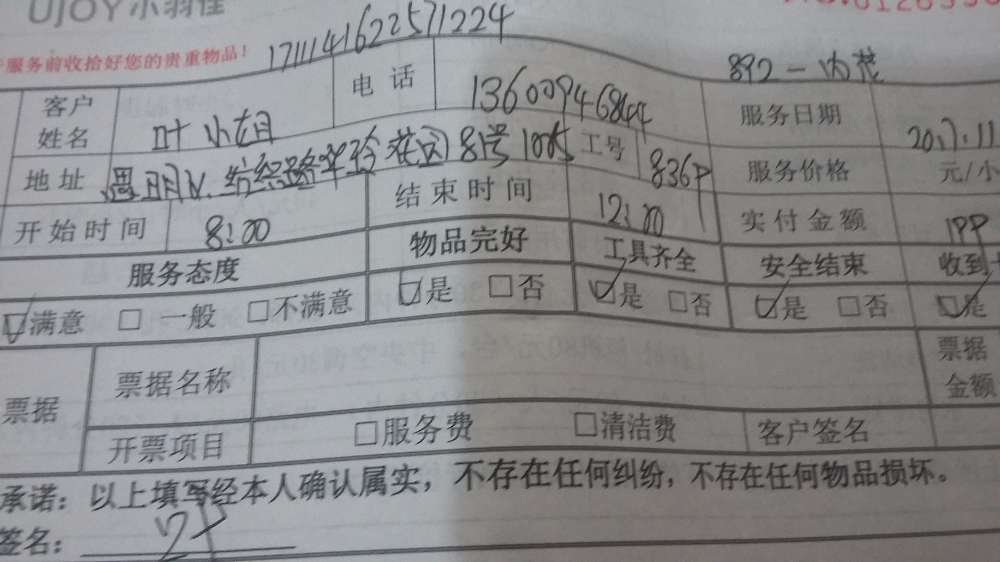 UJOY小羽佳
服务前收拾好您的贵重物品！ 1711141622571224
客户姓名 叶小姐 电话 13600946844 服务日期 2017.11
地址 路 花园81号 工号 836 服务价格 元/小
开始时间 8:00 结束时间 12:00 实付金额
服务态度 物品完好 工具齐全 安全结束 收到
☑满意 □一般 □不满意 ☑是 □否 ☑是 □否 ☑是 □否 ☑是
票据 票据名称 票据金额
开票项目 □服务费 □清洁费 客户签名
承诺：以上填写经本人确认属实，不存在任何纠纷，不存在任何物品损坏。
签名： 叶